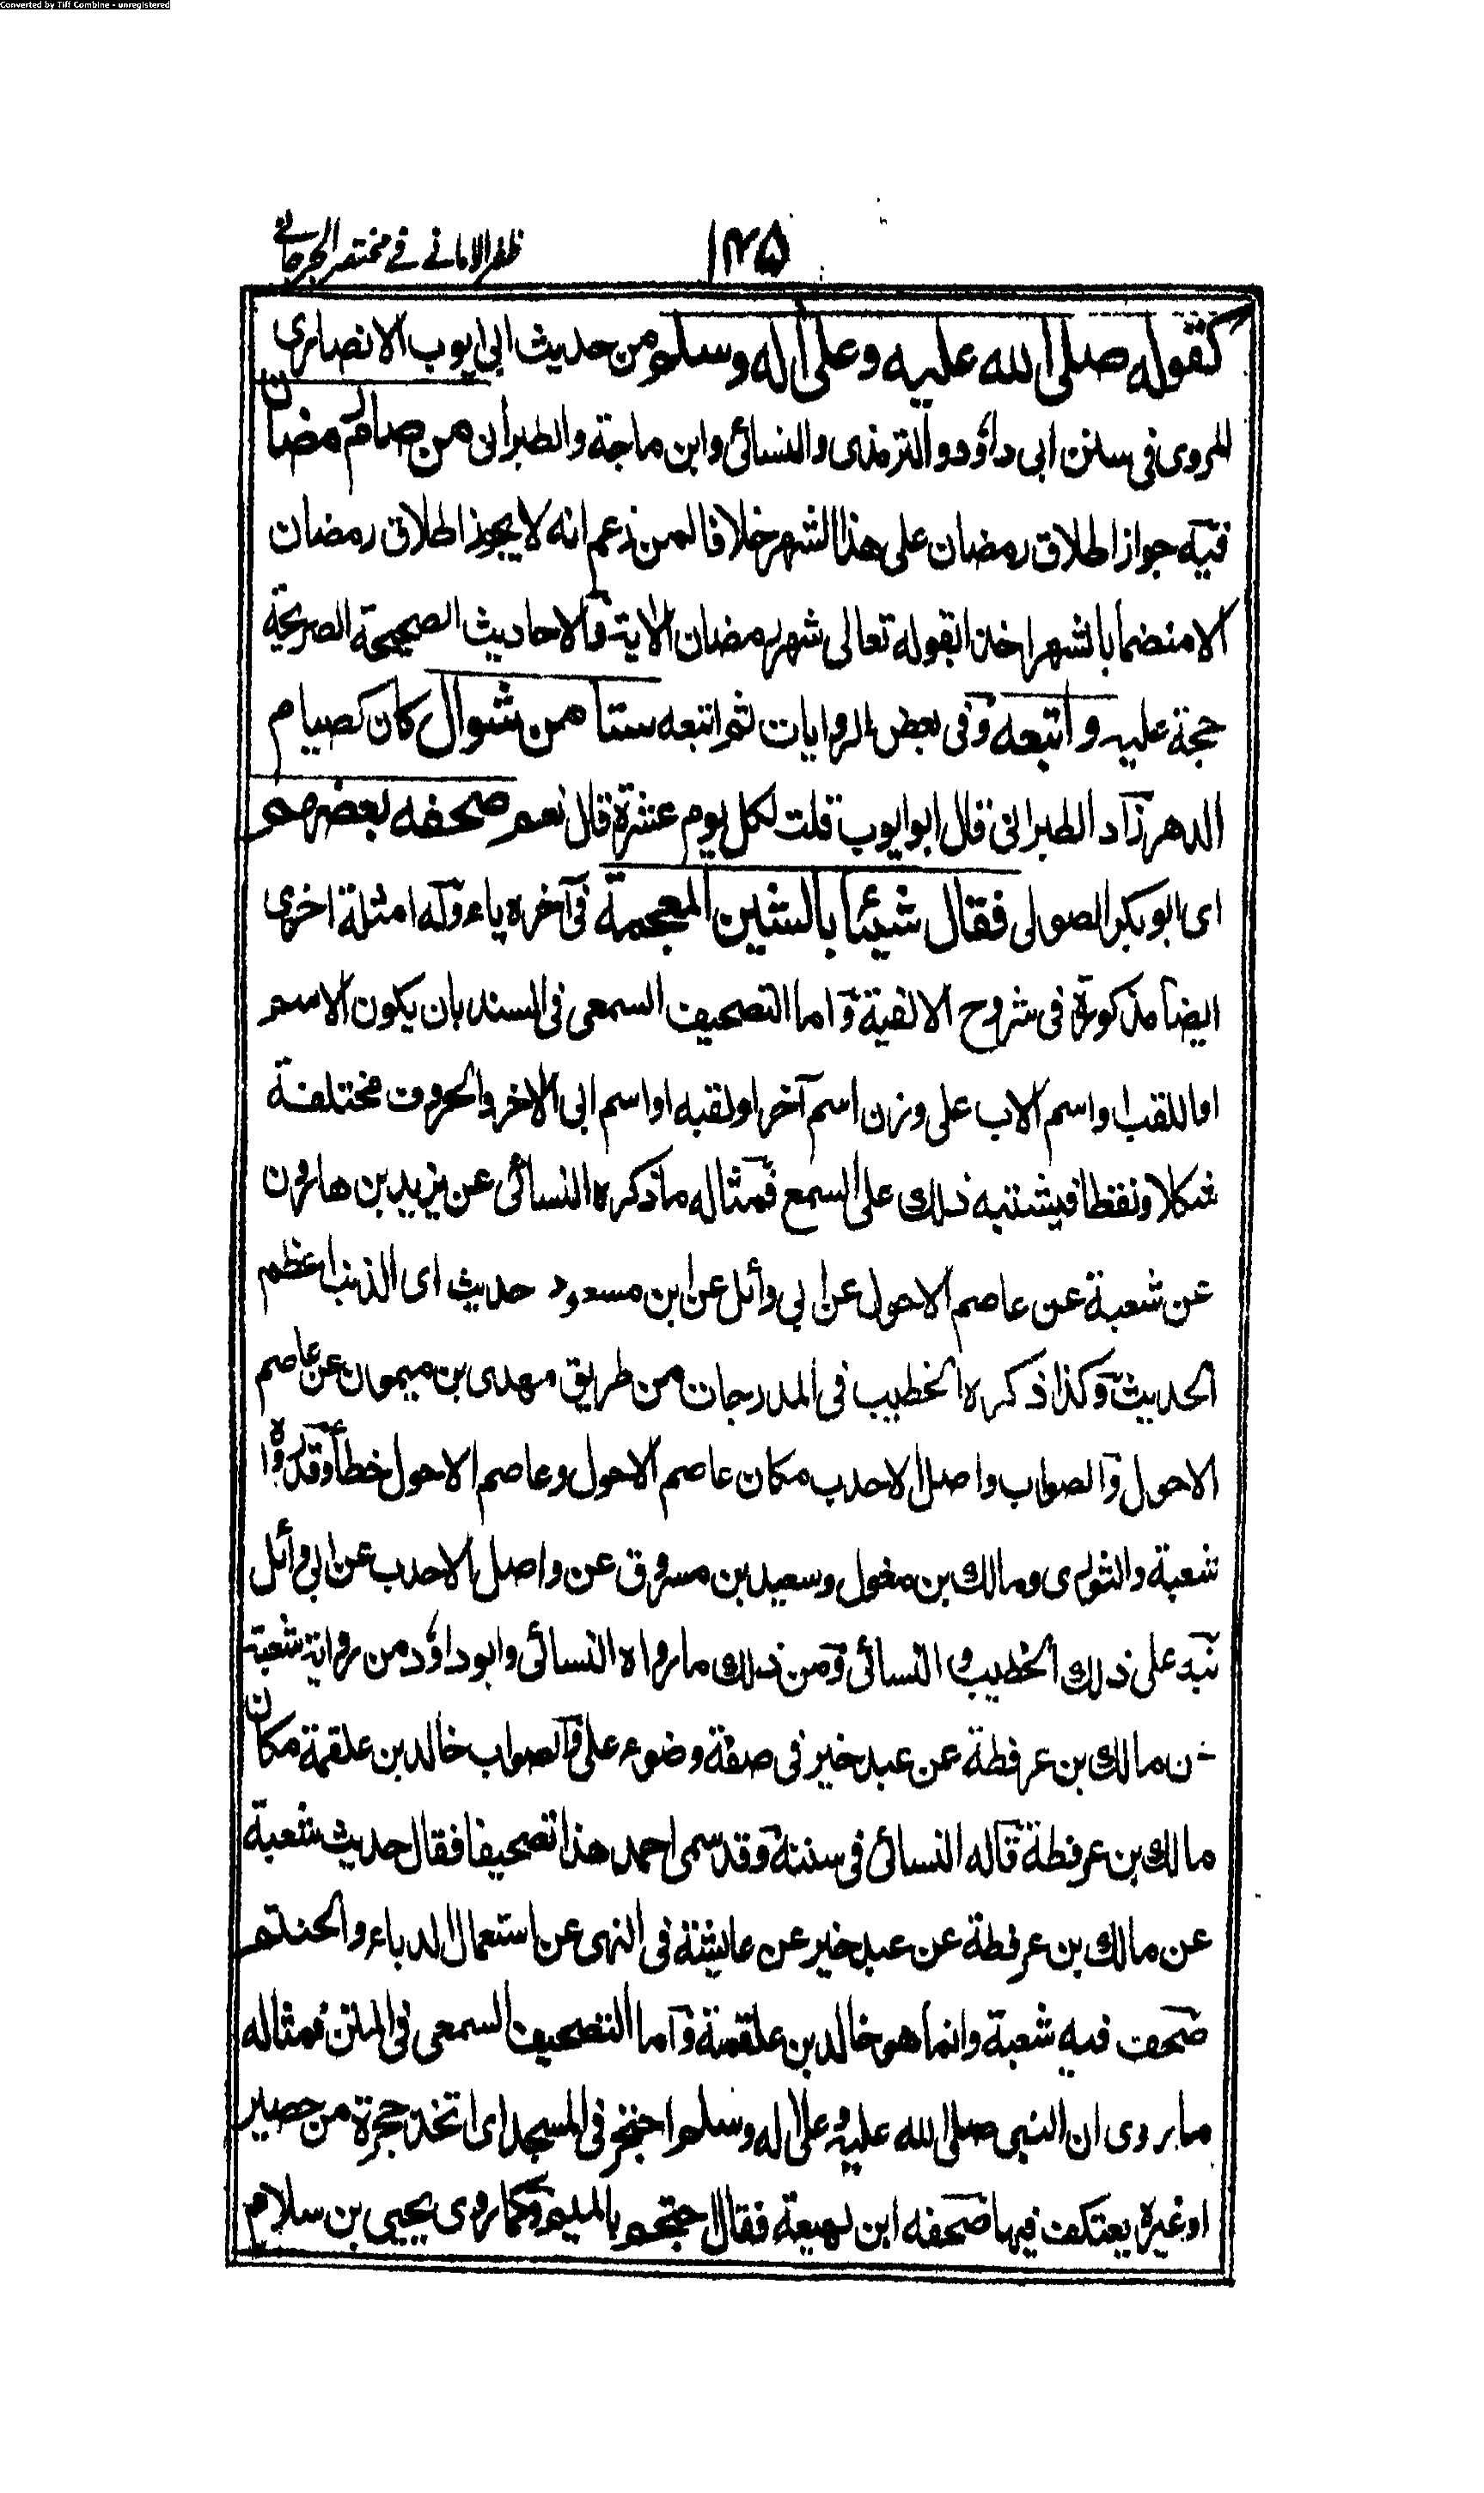 Converted by Tiff Combine - unregistered
ظفر الامانے فے مختصر الجرجانے
١٣٥
كقوله صلى الله عليه وعلى اله وسلم من حديث ابى ايوب الانصارى
المروى فى سنن ابى داؤد والترمذى والنسائى وابن ماجة والطبرانى من صام رمضان
فيه جواز اطلاق رمضان على هذا الشهر خلافا لمن زعم انه لا يجوز اطلاق رمضان
الا منضما بالشهر اخذا بقوله تعالى شهر رمضان الاية والاحاديث الصحيحة الصريحة
حجة عليه واتبعه وفى بعض الروايات ثم اتبعه ستا من شوال كان كصيام
الدهر زاد الطبرانى قال ابو ايوب قلت لكل يوم عشرة قال نعم صحفه بعضهم
اى ابو بكر الصولى فقال شيئا بالشين المعجمة فى آخره ياء وله امثلة اخرى
ايضا مذكورة فى شروح الالفية واما التصحيف السمعى فى السند بان يكون الاسم
او اللقب او اسم الاب على وزن اسم آخر او لقبه او اسم ابى الاخر والحروف مختلفة
شكلا ونقطا فيشتبه ذلك على السمع فمثاله ما ذكره النسائى عن يزيد بن هارون
عن شعبة عن عاصم الاحول عن ابى وائل عن ابن مسعود حديث اى الذنب اعظم
الحديث وكذا ذكره الخطيب فى المدرجات من طريق مهدى بن ميمون عن عاصم
الاحول والصواب واصل الاحدب مكان عاصم الاحول وعاصم الاحول خطأ وقد رواه
شعبة والثورى ومالك بن مغول وسعيد بن مسروق عن واصل الاحدب عن ابى وائل
نبه على ذلك الخطيب والنسائى ومن ذلك ما رواه النسائى وابو داؤد من رواية شعبة
عن مالك بن عرفطة عن عبد خير فى صفة وضوء على والصواب خالد بن علقمة مكان
مالك بن عرفطة قاله النسائى فى سننه وقد سمى احمد هذا تصحيفا فقال حديث شعبة
عن مالك بن عرفطة عن عبد خير عن عايشة فى النهى عن استعمال الدباء والحنتم
صحف فيه شعبة وانما هو خالد بن علقمة واما التصحيف السمعى فى المتن فمثاله
ما روى ان النبى صلى الله عليه وعلى اله وسلم احتجر فى المسجد اى اتخذ حجرة من حصير
او غيره يعتكف فيها صحفه ابن لهيعة فقال احتجم بالميم وكما روى يحيى بن سلام